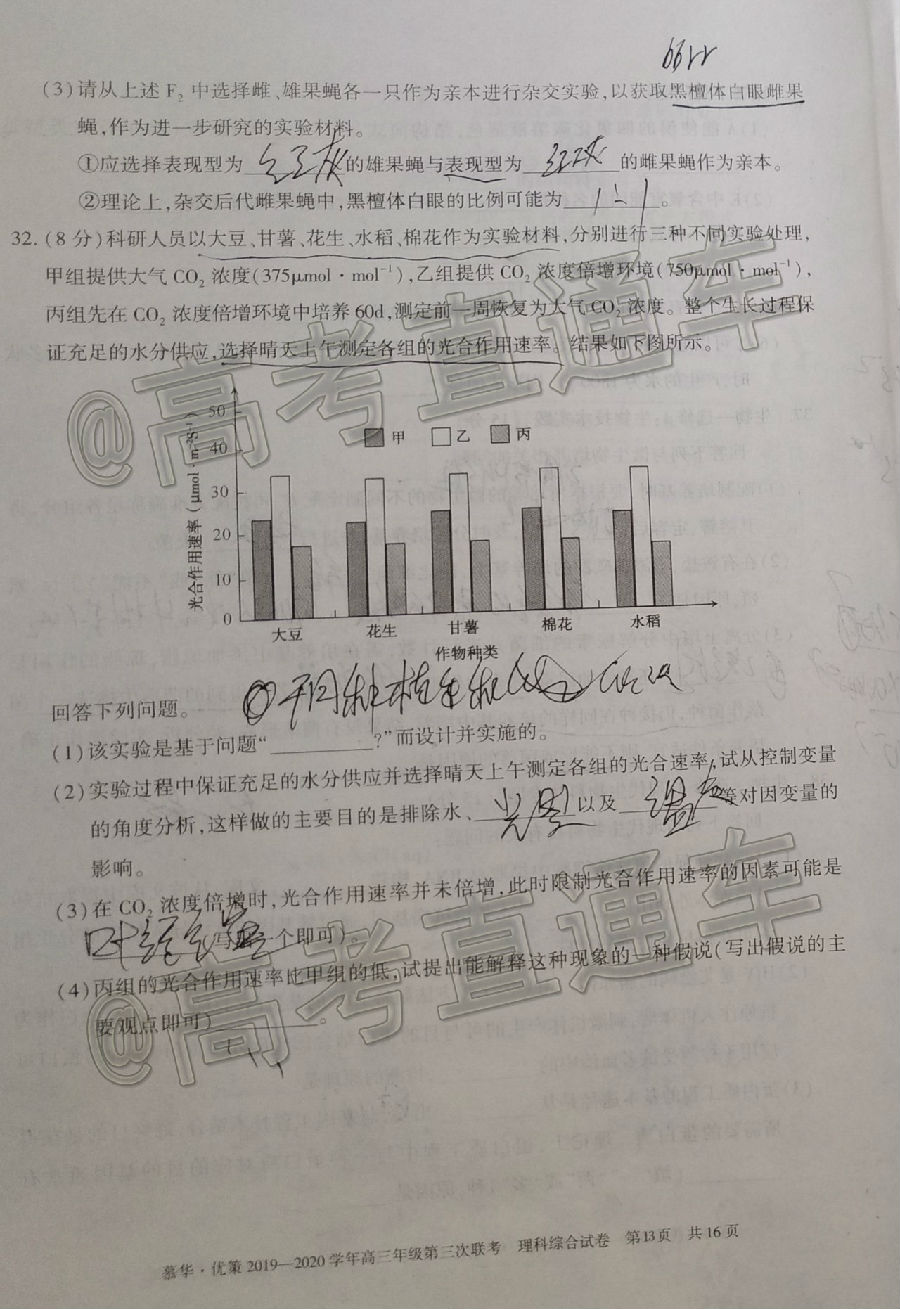 (3)请从上述F₂中选择雌、雄果蝇各一只作为亲本进行杂交实验,以获取黑檀体白眼雌果
蝇,作为进一步研究的实验材料。
①应选择表现型为 红灰 的雄果蝇与表现型为 红灰 的雌果蝇作为亲本。
②理论上,杂交后代雌果蝇中,黑檀体白眼的比例可能为 。
32.(8分)科研人员以大豆、甘薯、花生、水稻、棉花作为实验材料,分别进行三种不同实验处理,
甲组提供大气CO₂浓度(375μmol·mol⁻¹),乙组提供CO₂浓度倍增环境(750μmol·mol⁻¹),
丙组先在CO₂浓度倍增环境中培养60d,测定前一周恢复为大气CO₂浓度。整个生长过程保
证充足的水分供应,选择晴天上午测定各组的光合作用速率。结果如下图所示。
@高考直通车
光合作用速率(μmol·m⁻²s⁻¹)
50
40
30
20
10
0
甲 乙 丙
大豆 花生 甘薯 棉花 水稻
作物种类
回答下列问题。
(1)该实验是基于问题“__________?”而设计并实施的。
(2)实验过程中保证充足的水分供应并选择晴天上午测定各组的光合速率,试从控制变量
的角度分析,这样做的主要目的是排除水、 光照 以及 温度 等对因变量的
影响。
(3)在CO₂浓度倍增时,光合作用速率并未倍增,此时限制光合作用速率的因素可能是
写出一个即可)
(4)丙组的光合作用速率比甲组的低,试提出能解释这种现象的一种假说(写出假说的主
要观点即可)__________。
@高考直通车
慕华·优策2019—2020学年高三年级第三次联考 理科综合试卷 第13页 共16页